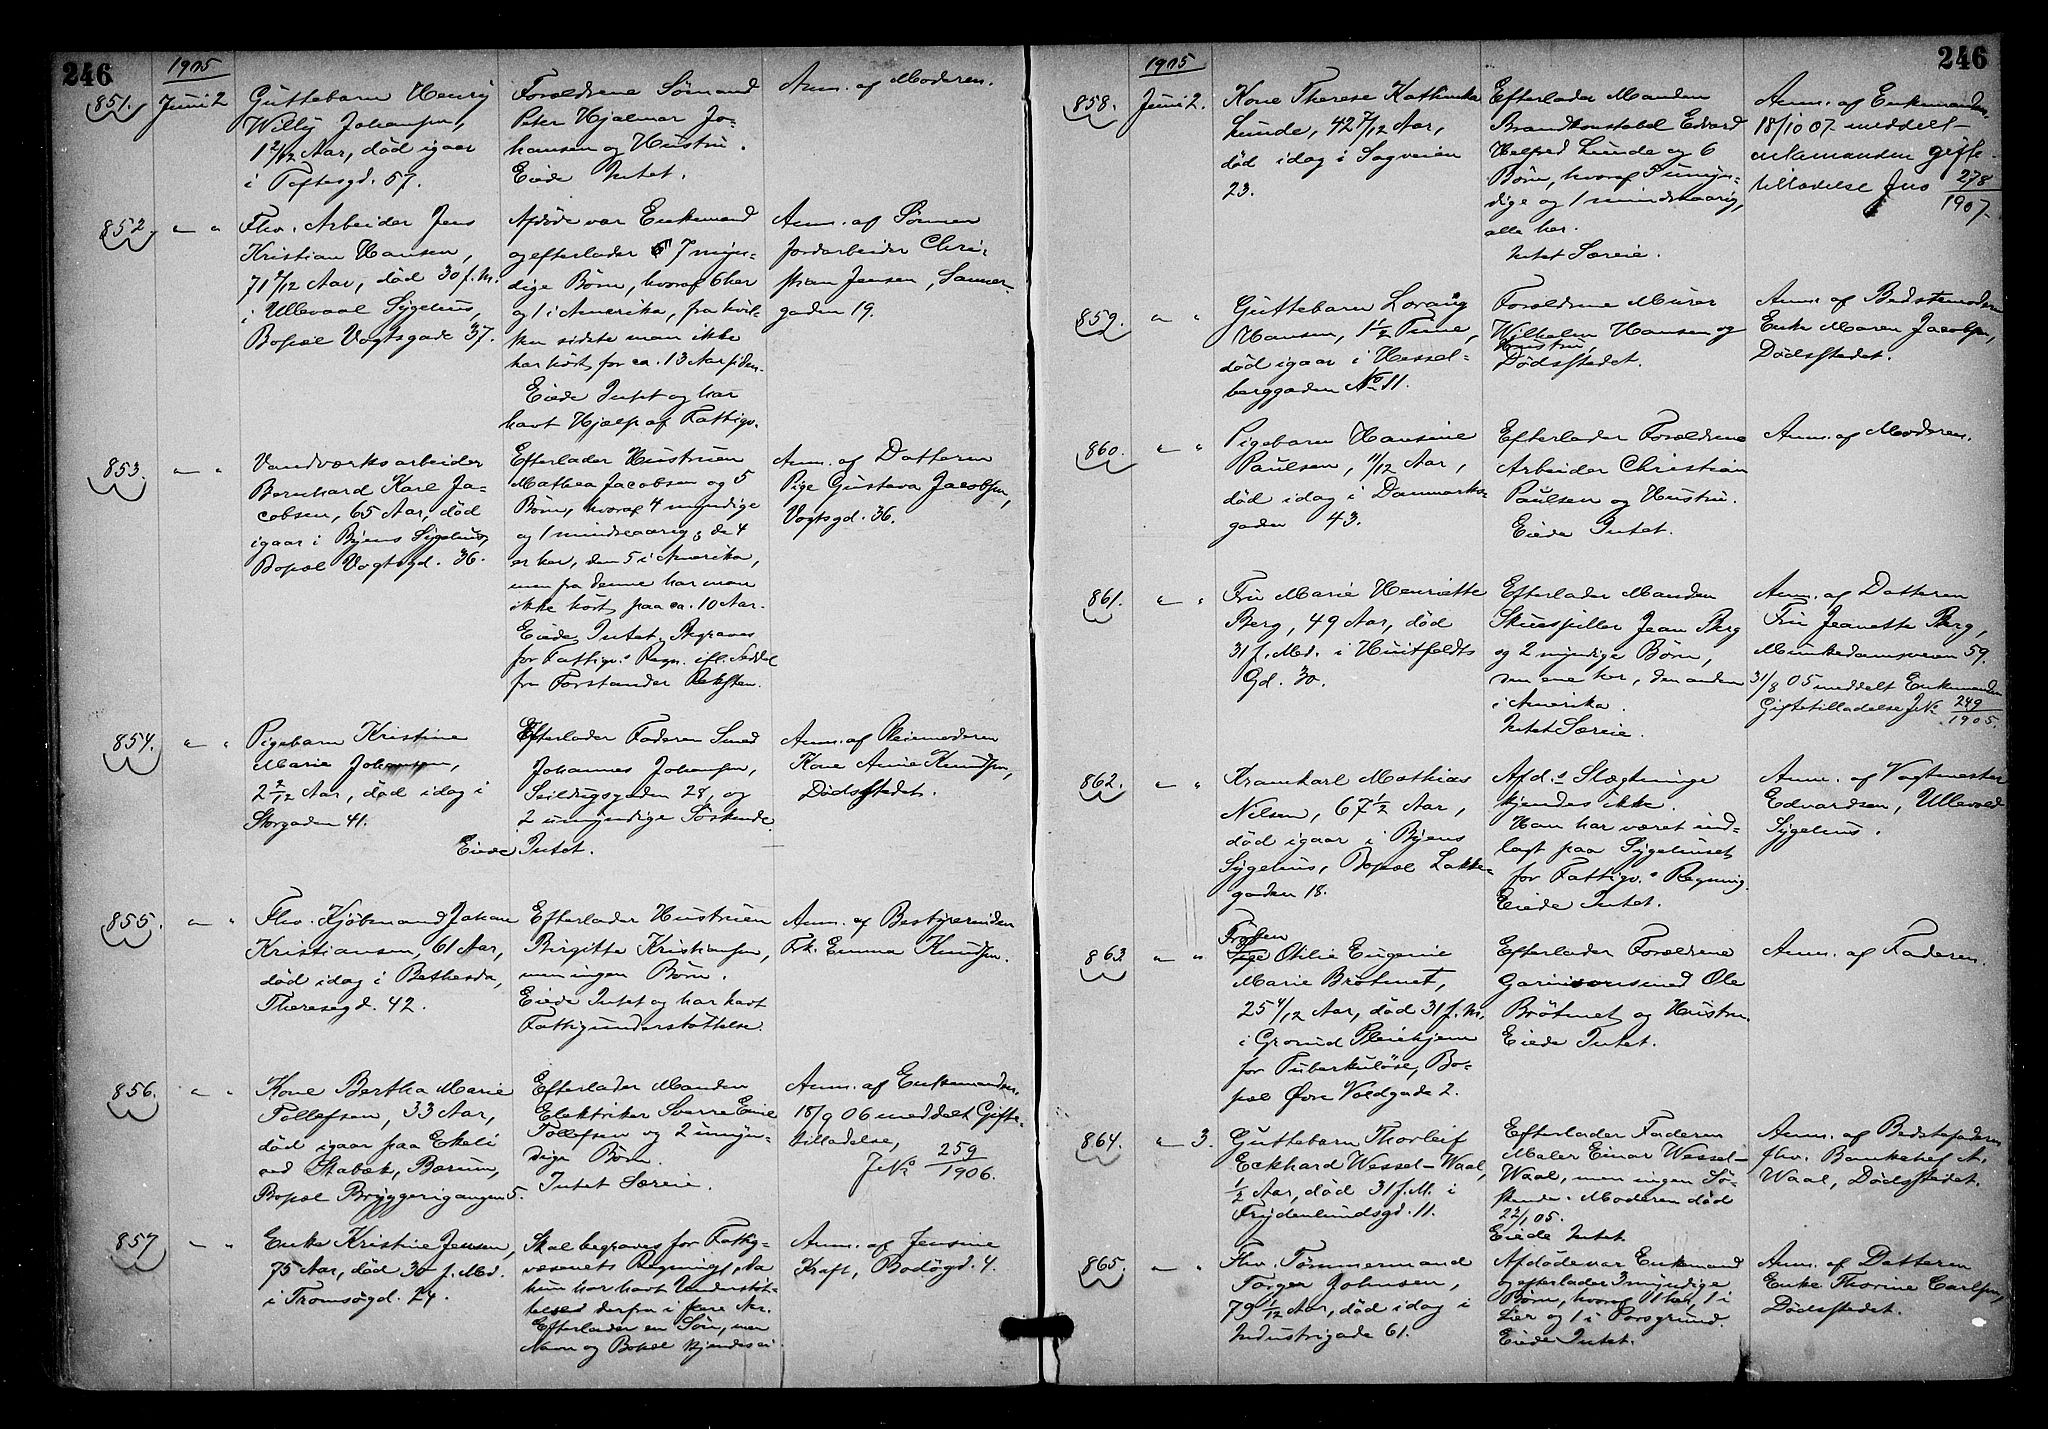 246
1905
851.
Juni 2
Guttebarn Henry
Willy Johansen,
1 2/12 Aar, død igaar
i Toftesgd. 57.
Forældrene Sømand
Peter Hjalmar Jo-
hansen og Hustru.
Eiede Intet.
Anm. af Moderen.
852.
" "
Fhv. Arbeider Jens
Kristian Hansen,
71 1/12 Aar, død 30 f. M.
i Ullevaal Sygehus,
Bopæl Vogtsgade 37.
Afdøde var Enkemand
og efterlader 7 myn-
dige Børn, hvoraf 6 her
og 1 i Amerika, fra hvil-
ken sidste man ikke
har hørt for ca. 13 Aar siden.
Eiede Intet og har
havt Hjælp af Fattigv.
Anm. af Sønnen
Jordarbeider Chri-
stian Jensen, Sanner-
gaden 19.
853.
" "
Vandværksarbeider
Bernhard Karl Ja-
cobsen, 65 Aar, død
igaar i Byens Sygehus,
Bopæl Vogtsgd. 36.
Efterlader Hustruen
Mathea Jacobsen og 5
Børn, hvoraf 4 myndige
og 1 mindreaarig, de 4
er her, den 5 i Amerika,
men fra denne har man
ikke hørt paa ca. 10 Aar.
Eiede Intet. Begraves
for Fattigv.s Regn. ifl. Seddel
fra Forstander Reksten.
Anm. af Datteren
Pige Gustava Jacobsen,
Vogtsgd. 36.
854.
" "
Pigebarn Kristine
Marie Johansen,
2 2/12 Aar, død idag i
Storgaden 41.
Efterlader Faderen Smed
Johannes Johansen,
Seildugsgaden 28, og
2 umyndige Søskende.
Eiede Intet.
Anm. af Pleiemoderen
Kone Anne Knudsen,
Dødsstedet.
855.
" "
Fhv. Kjøbmand Johan
Kristiansen, 61 Aar,
død idag i Bethesda,
Theresegd. 42.
Efterlader Hustruen
Birgitte Kristiansen,
men ingen Børn.
Eiede Intet og har havt
Fattigunderstøttelse.
Anm. af Bestyrerinden
Frk. Emma Knudsen.
856.
" "
Kone Bertha Marie
Tollefsen, 33 Aar,
død igaar paa Ekeli
ved Stabæk, Bærum,
Bopæl Bryggerigangen 5.
Efterlader Manden
Elektriker Sverre Emil
Tollefsen og 2 umyn-
dige Børn.
Intet Særeie.
Anm. af Enkemanden.
18/9 06 meddelt Gifte-
tilladelse,
J.No 259/1906.
857
" "
Enke Kristine Jensen,
75 Aar, død 30 f. Md.
i Tromsøgd. 24.
Skal begraves for Fattig-
væsenets Regning, da
hun har havt Understøt-
telse derfra i flere Aar.
Efterlader en Søn, men
Navn og Bopæl kjendes ei.
Anm. af Jensine
Kraft, Bodøgd. 4.
246
1905
858.
Juni 2.
Kone Therese Kathinka
Lunde, 42 7/12 Aar,
død idag i Sagveien
23.
Efterlader Manden
Brandkonstabel Edvard
Helfred Lunde og 6
Børn, hvoraf 5 umyn-
dige og 1 mindreaarig,
alle her.
Intet Særeie.
Anm. af Enkemanden.
18/10 07 meddelt
enkemanden gifte-
tilladelse Jno 278/1907.
859.
" "
Guttebarn Lorang
Hansen, 1 1/2 Time,
død igaar i Hessel-
berggaden No 11.
Forældrene Murer
Wilhelm Hansen og
Hustru,
Dødsstedet.
Anm. af Bedstemoderen
Enke Maren Jacobsen,
Dødsstedet.
860.
" "
Pigebarn Hansine
Paulsen, 11/12 Aar,
død idag i Danmarks-
gaden 43.
Efterlader Forældrene
Arbeider Christian
Paulsen og Hustru.
Eiede Intet.
Anm. af Moderen.
861.
" "
Fru Marie Henriette
Berg, 49 Aar, død
31 f. Md. i Huitfeldts
Gd. 30.
Efterlader Manden
Skuespiller Jean Berg
og 2 myndige Børn,
den ene her, den anden
i Amerika.
Intet Særeie.
Anm. af Datteren
Fru Jeanette Berg,
Munkedamsveien 59.
31/8 05 meddelt Enkemanden
Giftetilladelse J.No 249/1905.
862.
" "
Kramkarl Mathias
Nilsen, 67 1/2 Aar,
død igaar i Byens
Sygehus, Bopæl Lakke-
gaden 18.
Afd.s Slægtninge
kjendes ikke.
Han har været ind-
lagt paa Sygehuset
for Fattigv.s Regning.
Eiede Intet.
Anm. af Vagtmester
Edvardsen, Ullevold
Sygehus.
863.
" "
Frøken
Pige Otilie Eugenie
Marie Brøtmet,
25 4/12 Aar, død 31 f. M.
i Grorud Pleiehjem
for Tuberkuløse, Bo-
pæl Øvre Voldgade 2.
Efterlader Forældrene
Garnisonssmed Ole
Brøtmet og Hustru.
Eiede Intet.
Anm. af Faderen.
864.
" 3.
Guttebarn Thorleif
Eckhard Wessel-Waal,
1/2 Aar, død 31 f. M. i
Frydenlundsgd. 11.
Efterlader Faderen
Maler Einar Wessel-
Waal, men ingen Sø-
skende. Moderen død
22/1 05.
Eiede Intet.
Anm. af Bedstefaderen
fhv. Bankchef A.
Waal, Dødsstedet.
865.
" "
Fhv. Tømmermand
Torger Johnsen,
79 1/12 Aar, død idag i
Industrigade 61.
Afdøde var Enkemand
og efterlader 3 myndige
Børn, hvoraf 1 her, 1 i
Lier og 1 i Porsgrund.
Eiede Intet.
Anm. af Datteren
Enke Thorine Carlsen,
Dødsstedet.